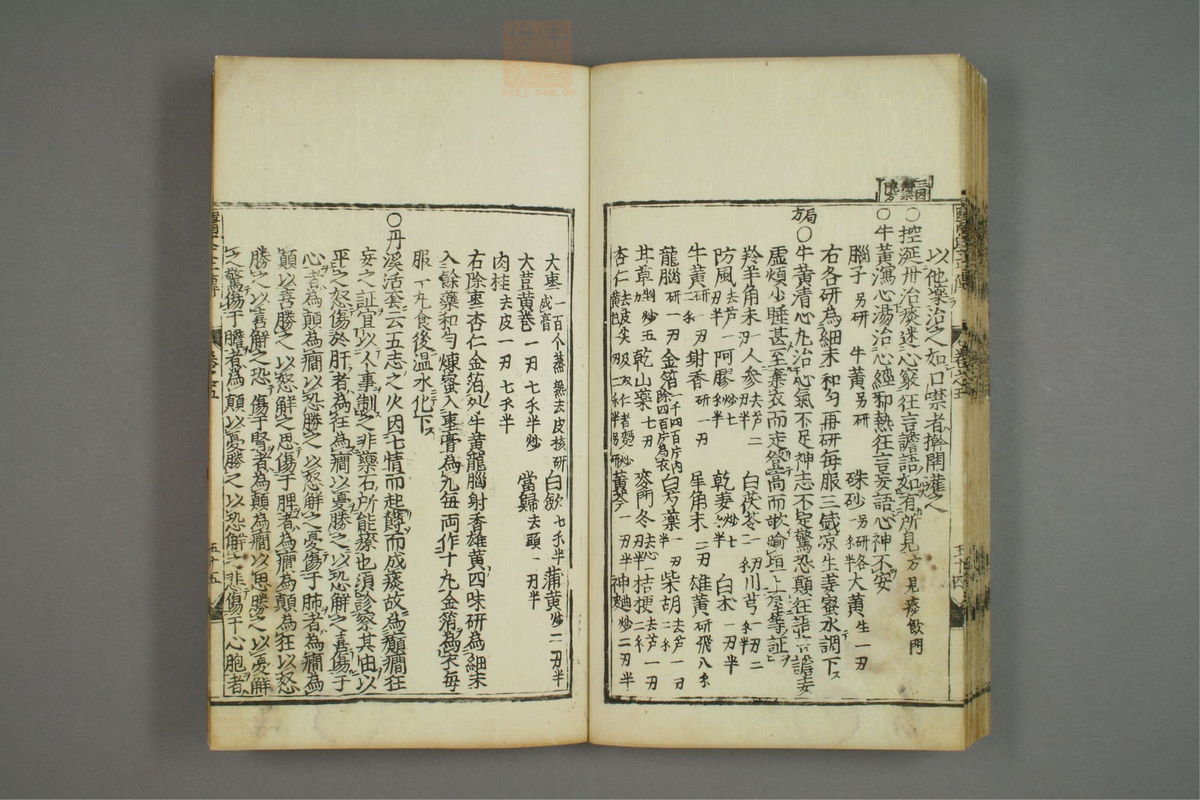 以他藥治之如口噤者斡開灌之
○控涎丹治痰迷心竅狂言譫語如有所見方見痰飲門
○牛黃瀉心湯治心經邪熱狂言妄語心神不安
腦子另研 牛黃另研 硃砂另研各一 大黃生一刃
右各研為細末和勻再研每服三戔凉生姜蜜水調下
局方○牛黃清心丸治心氣不足神志不定驚恐顛狂語言譫妄
虛煩少睡甚至棄衣而走登高而歌踰垣上屋等証
羚羊角末一刃 人參去芦二 白茯苓一 川芎一刃二
防風去芦一刃半 阿膠炒七 乾姜炒七 白朮一刃半
牛黃研一刃二 射香研一刃 犀角末二刃 雄黃研飛八
龍腦研一刃 金箔一千四百片內除四百片為衣 白芍藥一刃半 柴胡去芦一刃
甘草炒五 乾山藥七刃 麥門冬去心一刃半 桔梗去芦一刃
杏仁 黃芩一刃半 神麯炒二刃半
大棗一百个蒸熟去皮核研成膏 白斂七 半 蒲黃炒二刃半
大荳黃卷一刃七 半炒 當歸去頭一刃半
肉桂去皮一刃七 半
右除棗杏仁金箔 牛黃龍腦射香雄黃四味研為細末
入餘藥和勻煉蜜入棗膏為丸每両作十丸金箔為衣每
服一丸食後温水化下
○丹溪活套云五志之火因七情而起鬱而成痰故為癲癎狂
妄之証宜以人事制之非藥石所能療也須診察其由以
平之怒傷於肝者為狂為癎以憂勝之以恐解之喜傷于
心者為顛為癎以恐勝之以怒解之憂傷于肺者為癎為
顛以喜勝之以怒解之思傷于脾者為癎為顛為狂以怒
勝之以喜解之恐傷于腎者為顛為癎以思勝之以憂解
之驚傷于膽者為顛以憂勝之以恐解之悲傷于心胞者
卷之五
五十四
五十五
zysj.com.cn